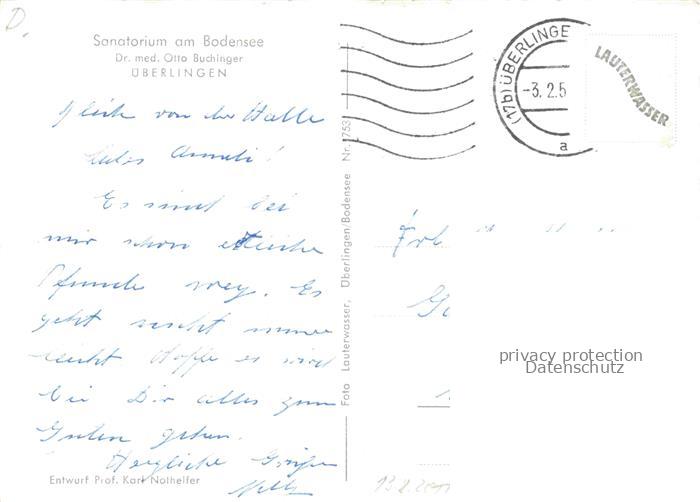 D.
Sanatorium am Bodensee
Dr. med. Otto Buchinger
ÜBERLINGEN
(17b) ÜBERLINGE
-3. 2. 5
a
LAUTERWASSER
Gleich von der Stelle
liebes Anneli!
Es sind bei
mir schon etliche
Pfunde weg. Es
geht nicht immer
leicht Hoffe es wird
bei Dir alles zum
Guten gehen.
Herzliche Grüße
Entwurf Prof. Karl Nothelfer
Foto Lauterwasser, Überlingen/Bodensee Nr. 1753
Frl
privacy protection
Datenschutz